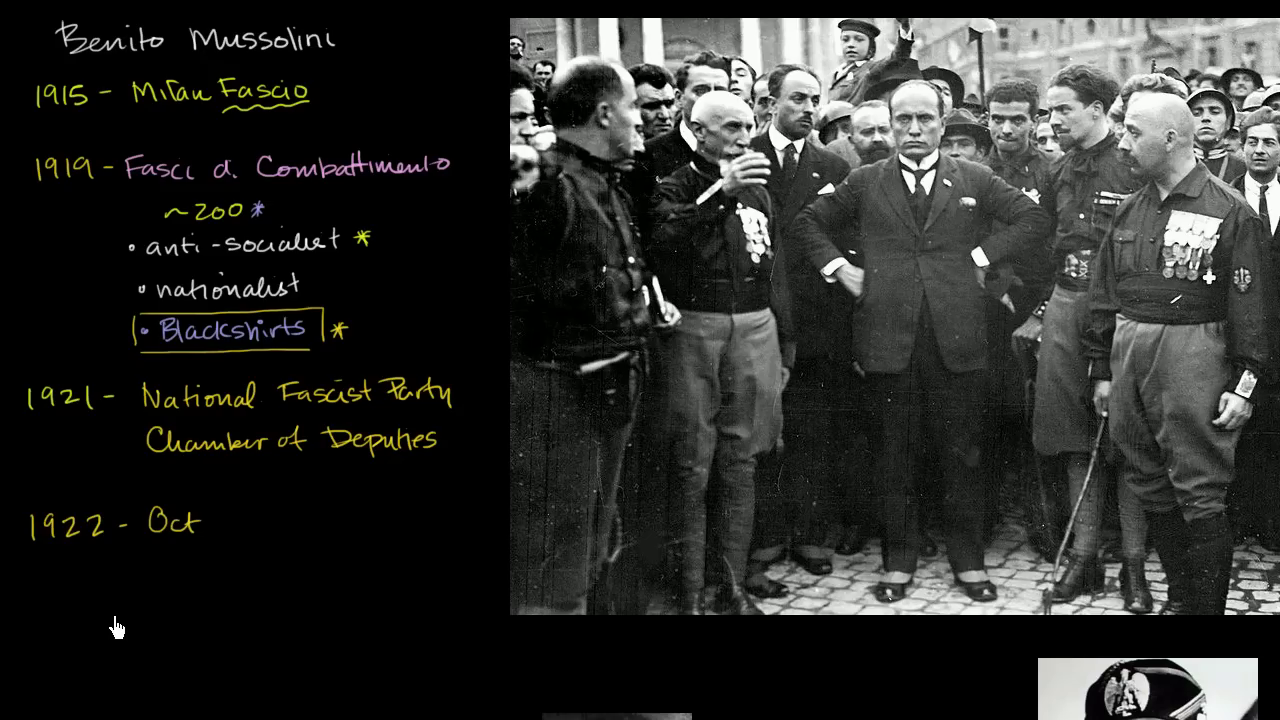 Benito Mussolini
1915 - Milan Fascio
1919 - Fasci di Combattimento
~200 *
• anti-socialist *
• nationalist
• Blackshirts *
1921 - National Fascist Party
Chamber of Deputies
1922 - Oct